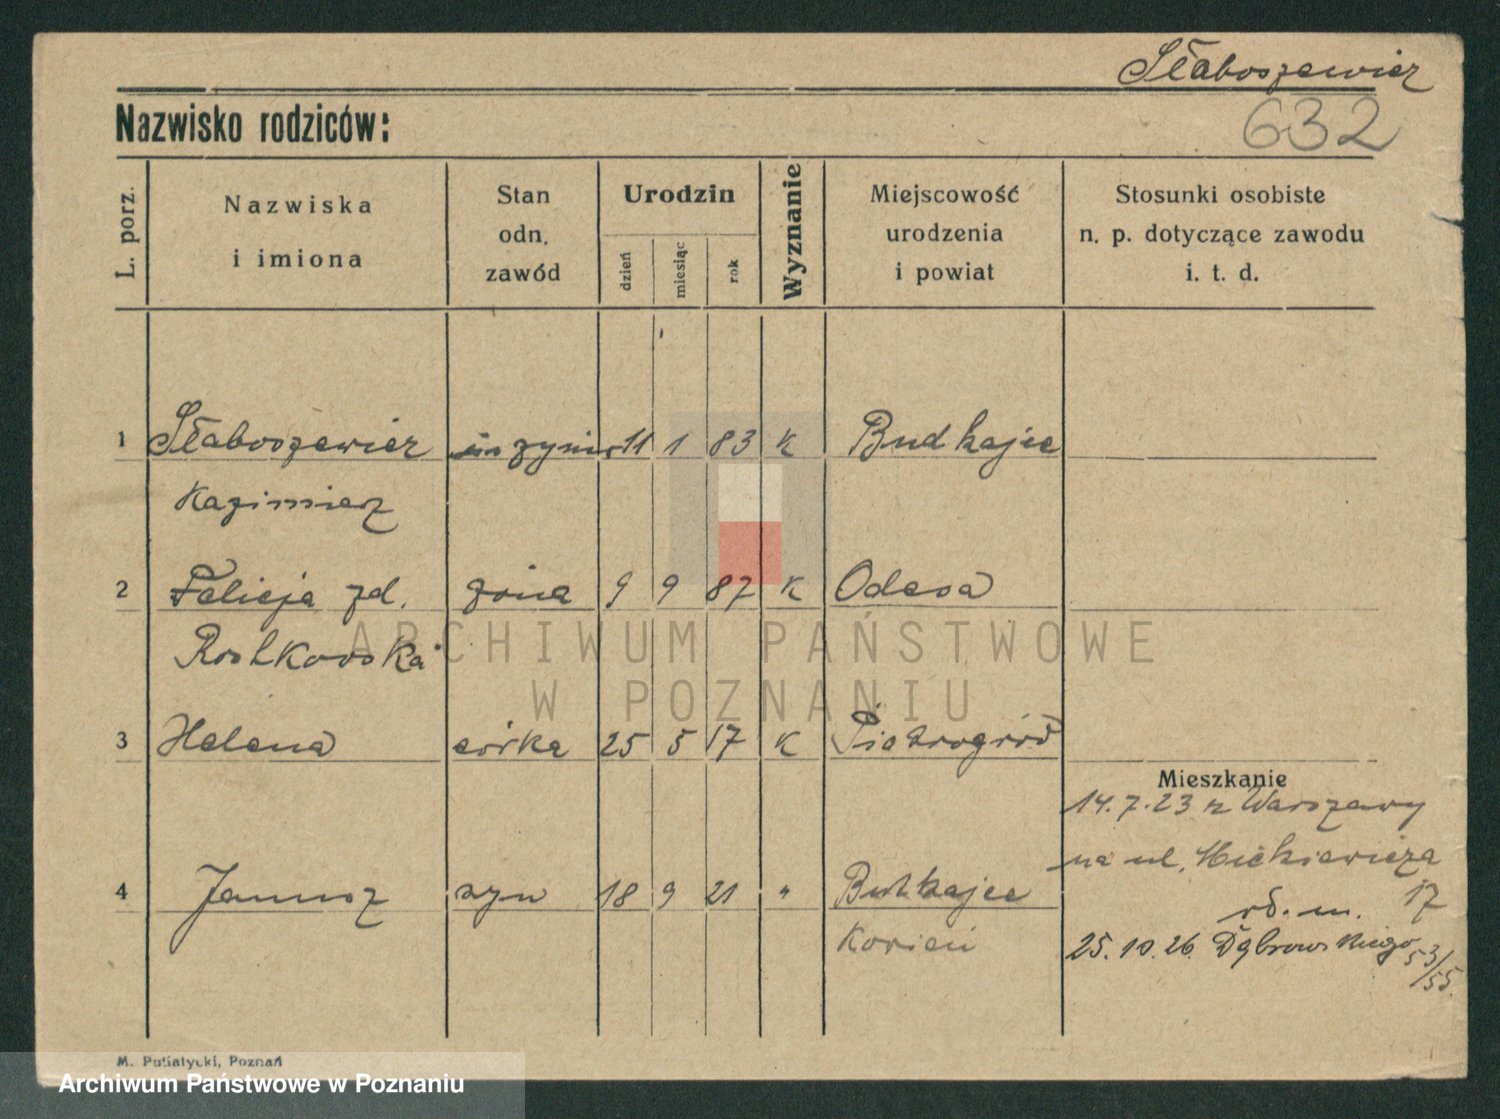 Słaboszewicz
632
Nazwisko rodziców:
L. porz.
Nazwiska
i imiona
Stan
odn.
zawód
Urodzin
dzień
miesiąc
rok
Wyznanie
Miejscowość
urodzenia
i powiat
Stosunki osobiste
n. p. dotyczące zawodu
i. t. d.
1 Słaboszewicz inżynier 11 1 83 K Budkajce
Kazimierz
2 Felicja zd. żona 9 9 87 K Odesa
Roshkowska
3 Helena córka 25 5 17 K Piotrogród
Mieszkanie
14.7.23 z Warszawy
na ul. Mickiewicza
17
4 Janusz syn 18 9 21 "
rd. m.
25.10.26 Dąbrowskiego 53/55.
M. Putiatycki, Poznań
ARCHIWUM PAŃSTWOWE
W POZNANIU
Archiwum Państwowe w Poznaniu